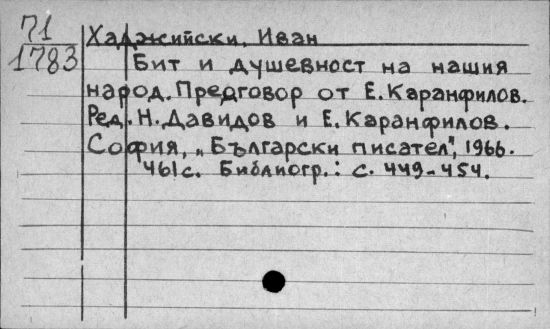 71
1783
Хаджийски, Иван
Бит и душевност на нашия
народ. Предговор от Е. Каранфилов.
Ред. Н. Давидов и Е. Каранфилов.
София, „Български писател", 1966.
461 с. Библиогр.: с. 449-454.